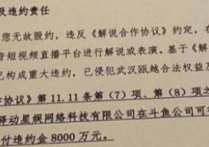 及违约责任
您无故毁约，违反《解说合作协议》约定，在
音短视频直播平台进行解说或表演。基于《解
已构成重大违约，已侵犯武汉瓯越合法权益及
作协议》第 11.11 条第（7）项、第（8）项之
驿动星娱网络科技有限公司在斗鱼公司可
付违约金 8000 万元。